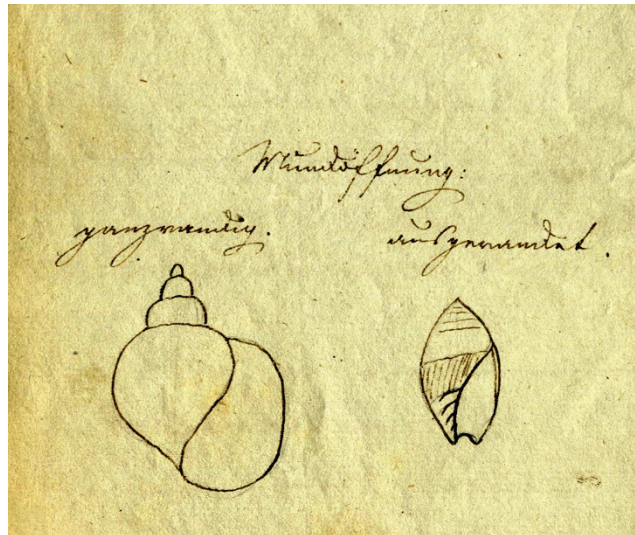 Mundöffnung:
ganzrandig. ausgerandet.